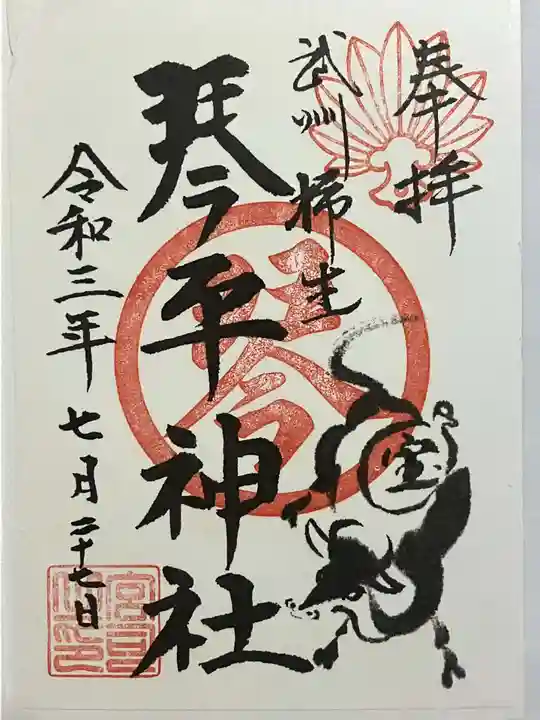 奉拝
武州柿生
琴平神社
令和三年七月二十七日
宝